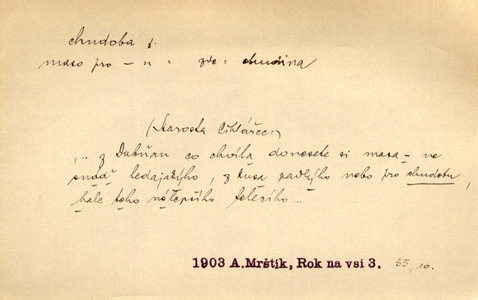 chudoba f.
maso pro – u : zde : chudina
(Starosta Cihlářce:)
„.. z Dubňan co chvíla donesete si masa – ne
snáď ledajakýho, z kusa padlýho nebo pro chudobu,
hale teho nélepšího telecího...
1903 A.Mrštík, Rok na vsi 3. 55, 10.